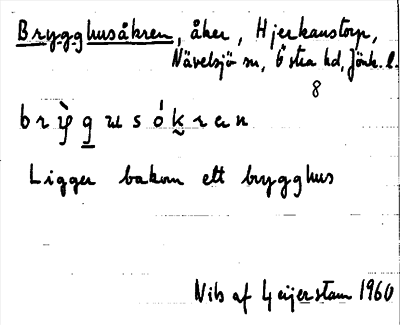 Brygghusåkren, åker, Hjerkanstorp,
Nävelsjö sn, Östra hd, Jönk. l.
8
Ligger bakom ett brygghus
Nils af Geijerstam 1960